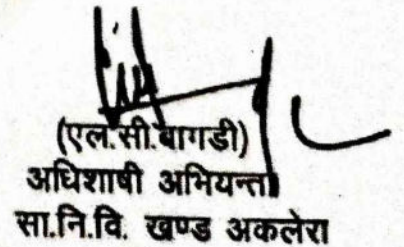 (एल.सी.बागडी)
अधिशाषी अभियन्ता
सा.नि.वि. खण्ड अकलेरा